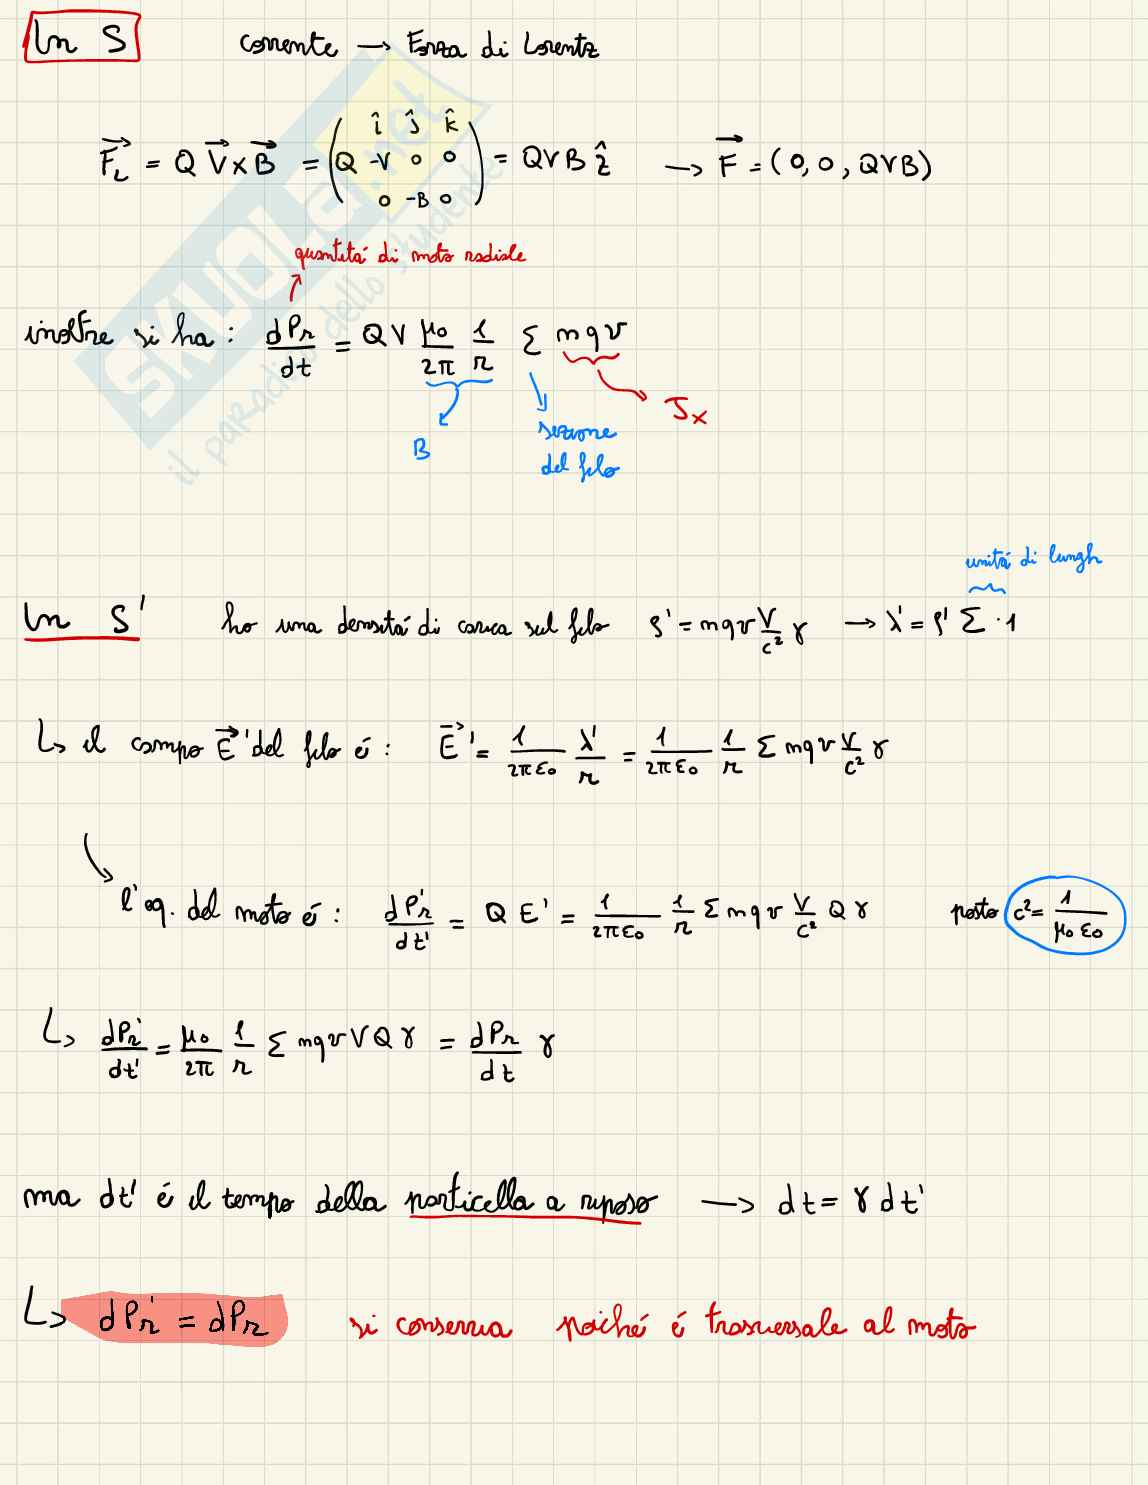 In S corrente → Forza di Lorentz
î ĵ k̂
F⃗_L = Q V⃗ x B⃗ = ( Q -V 0 0 ) = Q V B ẑ → F⃗ = (0, 0, QVB)
0 -B 0
quantitá di moto radiale
inoltre si ha : dPr/dt = Q V μ₀/2π 1/r Σ n q v
B sezione del filo Jx
unitá di lungh
In S' ho una densitá di carica sul filo ρ' = n q v V/c² γ → λ' = ρ' Σ · 1
↳ il campo E⃗' del filo é : E⃗' = 1/2πε₀ λ'/r = 1/2πε₀ 1/r Σ n q v V/c² γ
l'eq. del moto é : dPr'/dt' = Q E' = 1/2πε₀ 1/r Σ n q v V/c² Q γ posto c² = 1/μ₀ε₀
↳ dPr'/dt' = μ₀/2π 1/r Σ n q v V Q γ = dPr/dt γ
ma dt' é il tempo della particella a riposo → dt = γ dt'
↳ dPr' = dPr si conserva poiché é trasversale al moto
SKUOLA.net
il paradiso dello studente